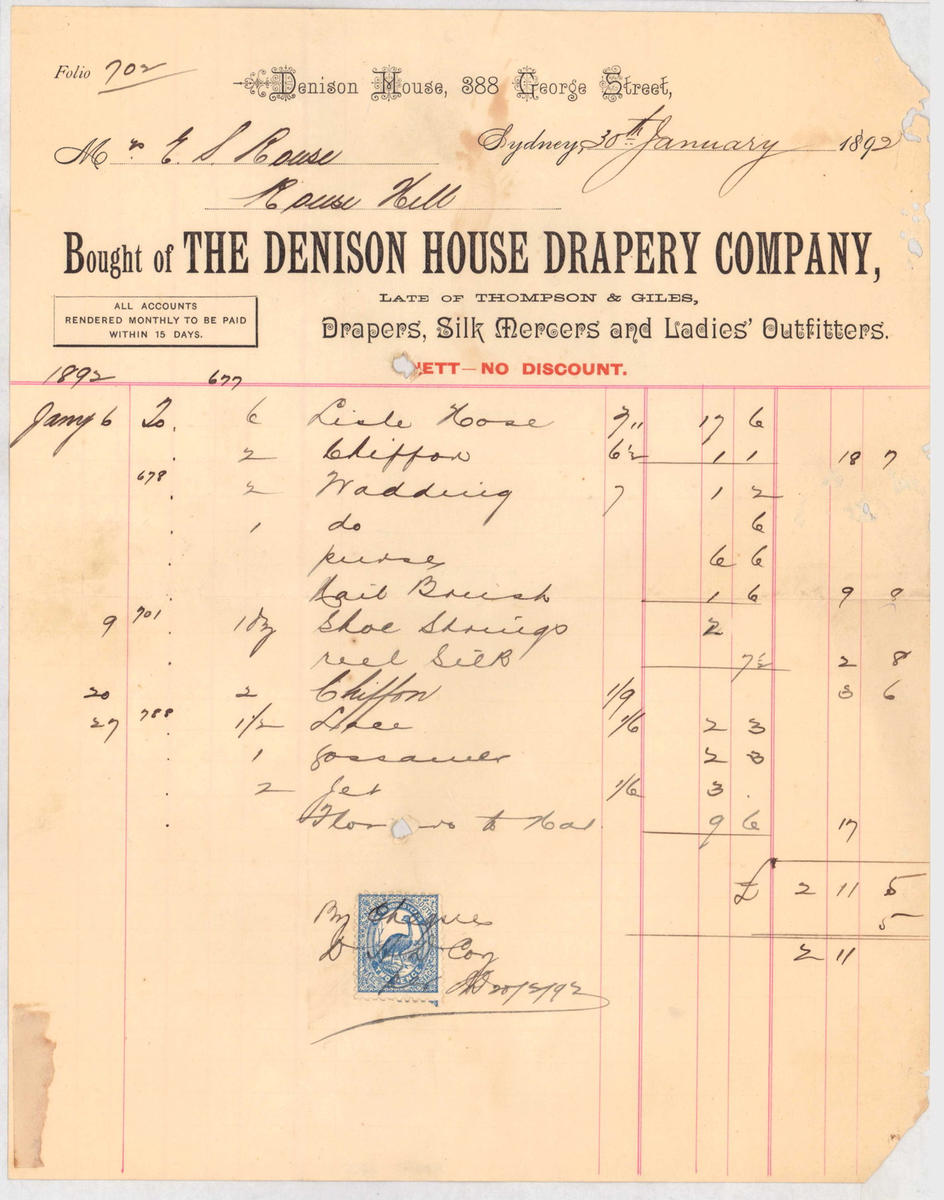 Folio 702
Denison House, 388 George Street,
Mrs. E. S. Rouse
Sydney, 30th January 1892
Rouse Hill
Bought of THE DENISON HOUSE DRAPERY COMPANY,
LATE OF THOMPSON & GILES,
ALL ACCOUNTS
RENDERED MONTHLY TO BE PAID
WITHIN 15 DAYS.
Drapers, Silk Mercers and Ladies' Outfitters.
NETT—NO DISCOUNT.
1892 677
Jany 6 To. 6 Lisle Hose 2/11 17 6
2 Chiffon 6½ 1 1 18 7
678 2 Wadding 7 1 2
1 do 6
purse 6 6
Nail Brush 1 6 9 8
9 701 1dz Shoe Strings 2
reel Silk 7½ 2 8
20 2 Chiffon 1/9 3 6
27 788 1½ Lace 1/6 2 3
1 gossamer 2 3
2 Jet 1/6 3 .
to Hat 9 6 17
£ 2 11 5
5
By Cheque 2 11
D Coy
20/2/92
TWO PENCE